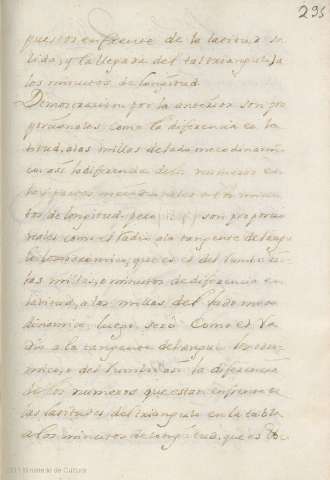 295
puestos enfrente de la latitud sa
lida, y la llegada del tal triangulo, a
los minutos de longitud.
Demostracion por la anterior son pro
porcionales, como la diferencia en la
titud, a las millas de lado mecodinami
co; asi la diferencia de los numeros en
las partes meridionales a los minu
tos de longitud, pero son proporcio
nales como el Radio a la tangente del angu
lo loxodromico, que es el del rumbo
las millas, o minutos de diferencia en
latitud, a las millas del lado meco
dinamico; luego, será Como el Ra
dio a la tangente del angulo loxodro
mico, o del rumbo; asi la diferencia
de los numeros que estan enfrente de
las latitudes del triangulo en la tabla
a los minutos de longitud, que es lo
Ministerio de Cultura